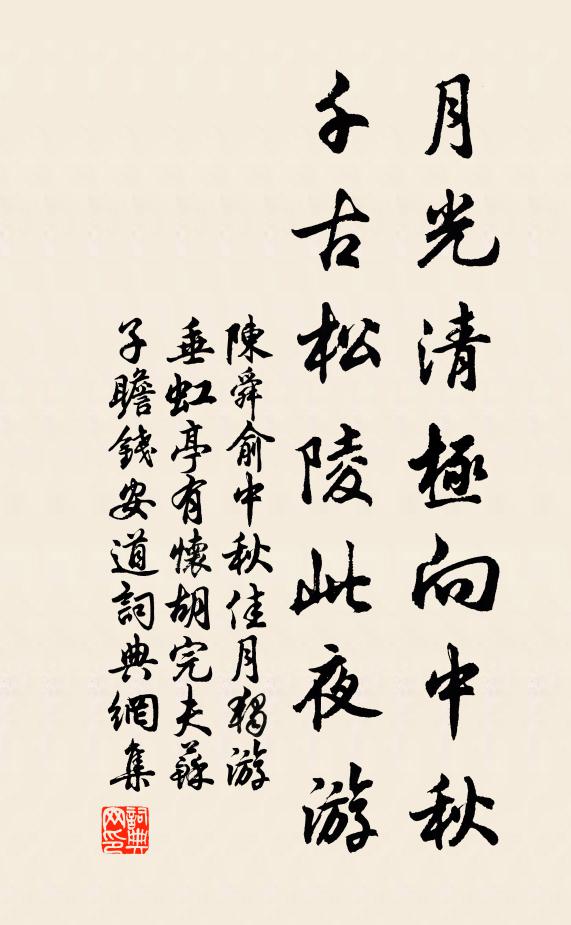 月光清極向中秋
千古松陵此夜游
陳舜俞中秋佳月獨游
垂虹亭有懷胡完夫蘇
子瞻錢安道詞典網集
詞典
网印